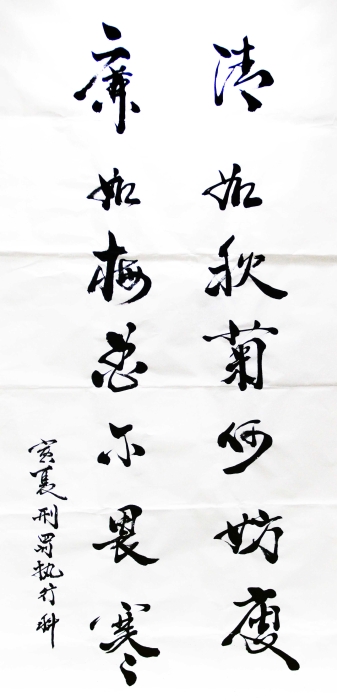 清如秋菊何妨瘦
廉如梅花不畏寒
寅夏刑罚执行科